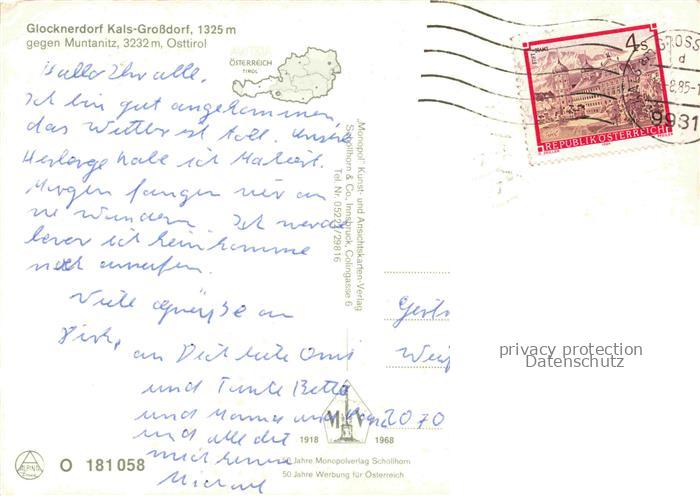 Glocknerdorf Kals-Großdorf, 1325 m
gegen Muntanitz, 3232 m, Osttirol
ÖSTERREICH
TIROL
Hallo Ihr alle,
Ich bin gut angekommen,
das Wetter ist toll. Unsere
habe ich
Morgen fangen wir an
zu wandern. Ich werde
bevor ich heimkomme
noch anrufen.
Viele Grüße an
an Dich liebe Omi
und Tante
und Mama und Papa
und alle die
mich kennen
Michael
"Monopol" Kunst- und Ansichtskarten-Verlag
Schöllhorn & Co., Innsbruck, Colingasse 6
Tel. Nr. 05222/29816
4s
STIFT STAMS
REPUBLIK ÖSTERREICH
GROSS
d
85-1
9981
2070
privacy protection
Datenschutz
M V
1918 1968
50 Jahre Monopolverlag Schöllhorn
50 Jahre Werbung für Österreich
O 181 058